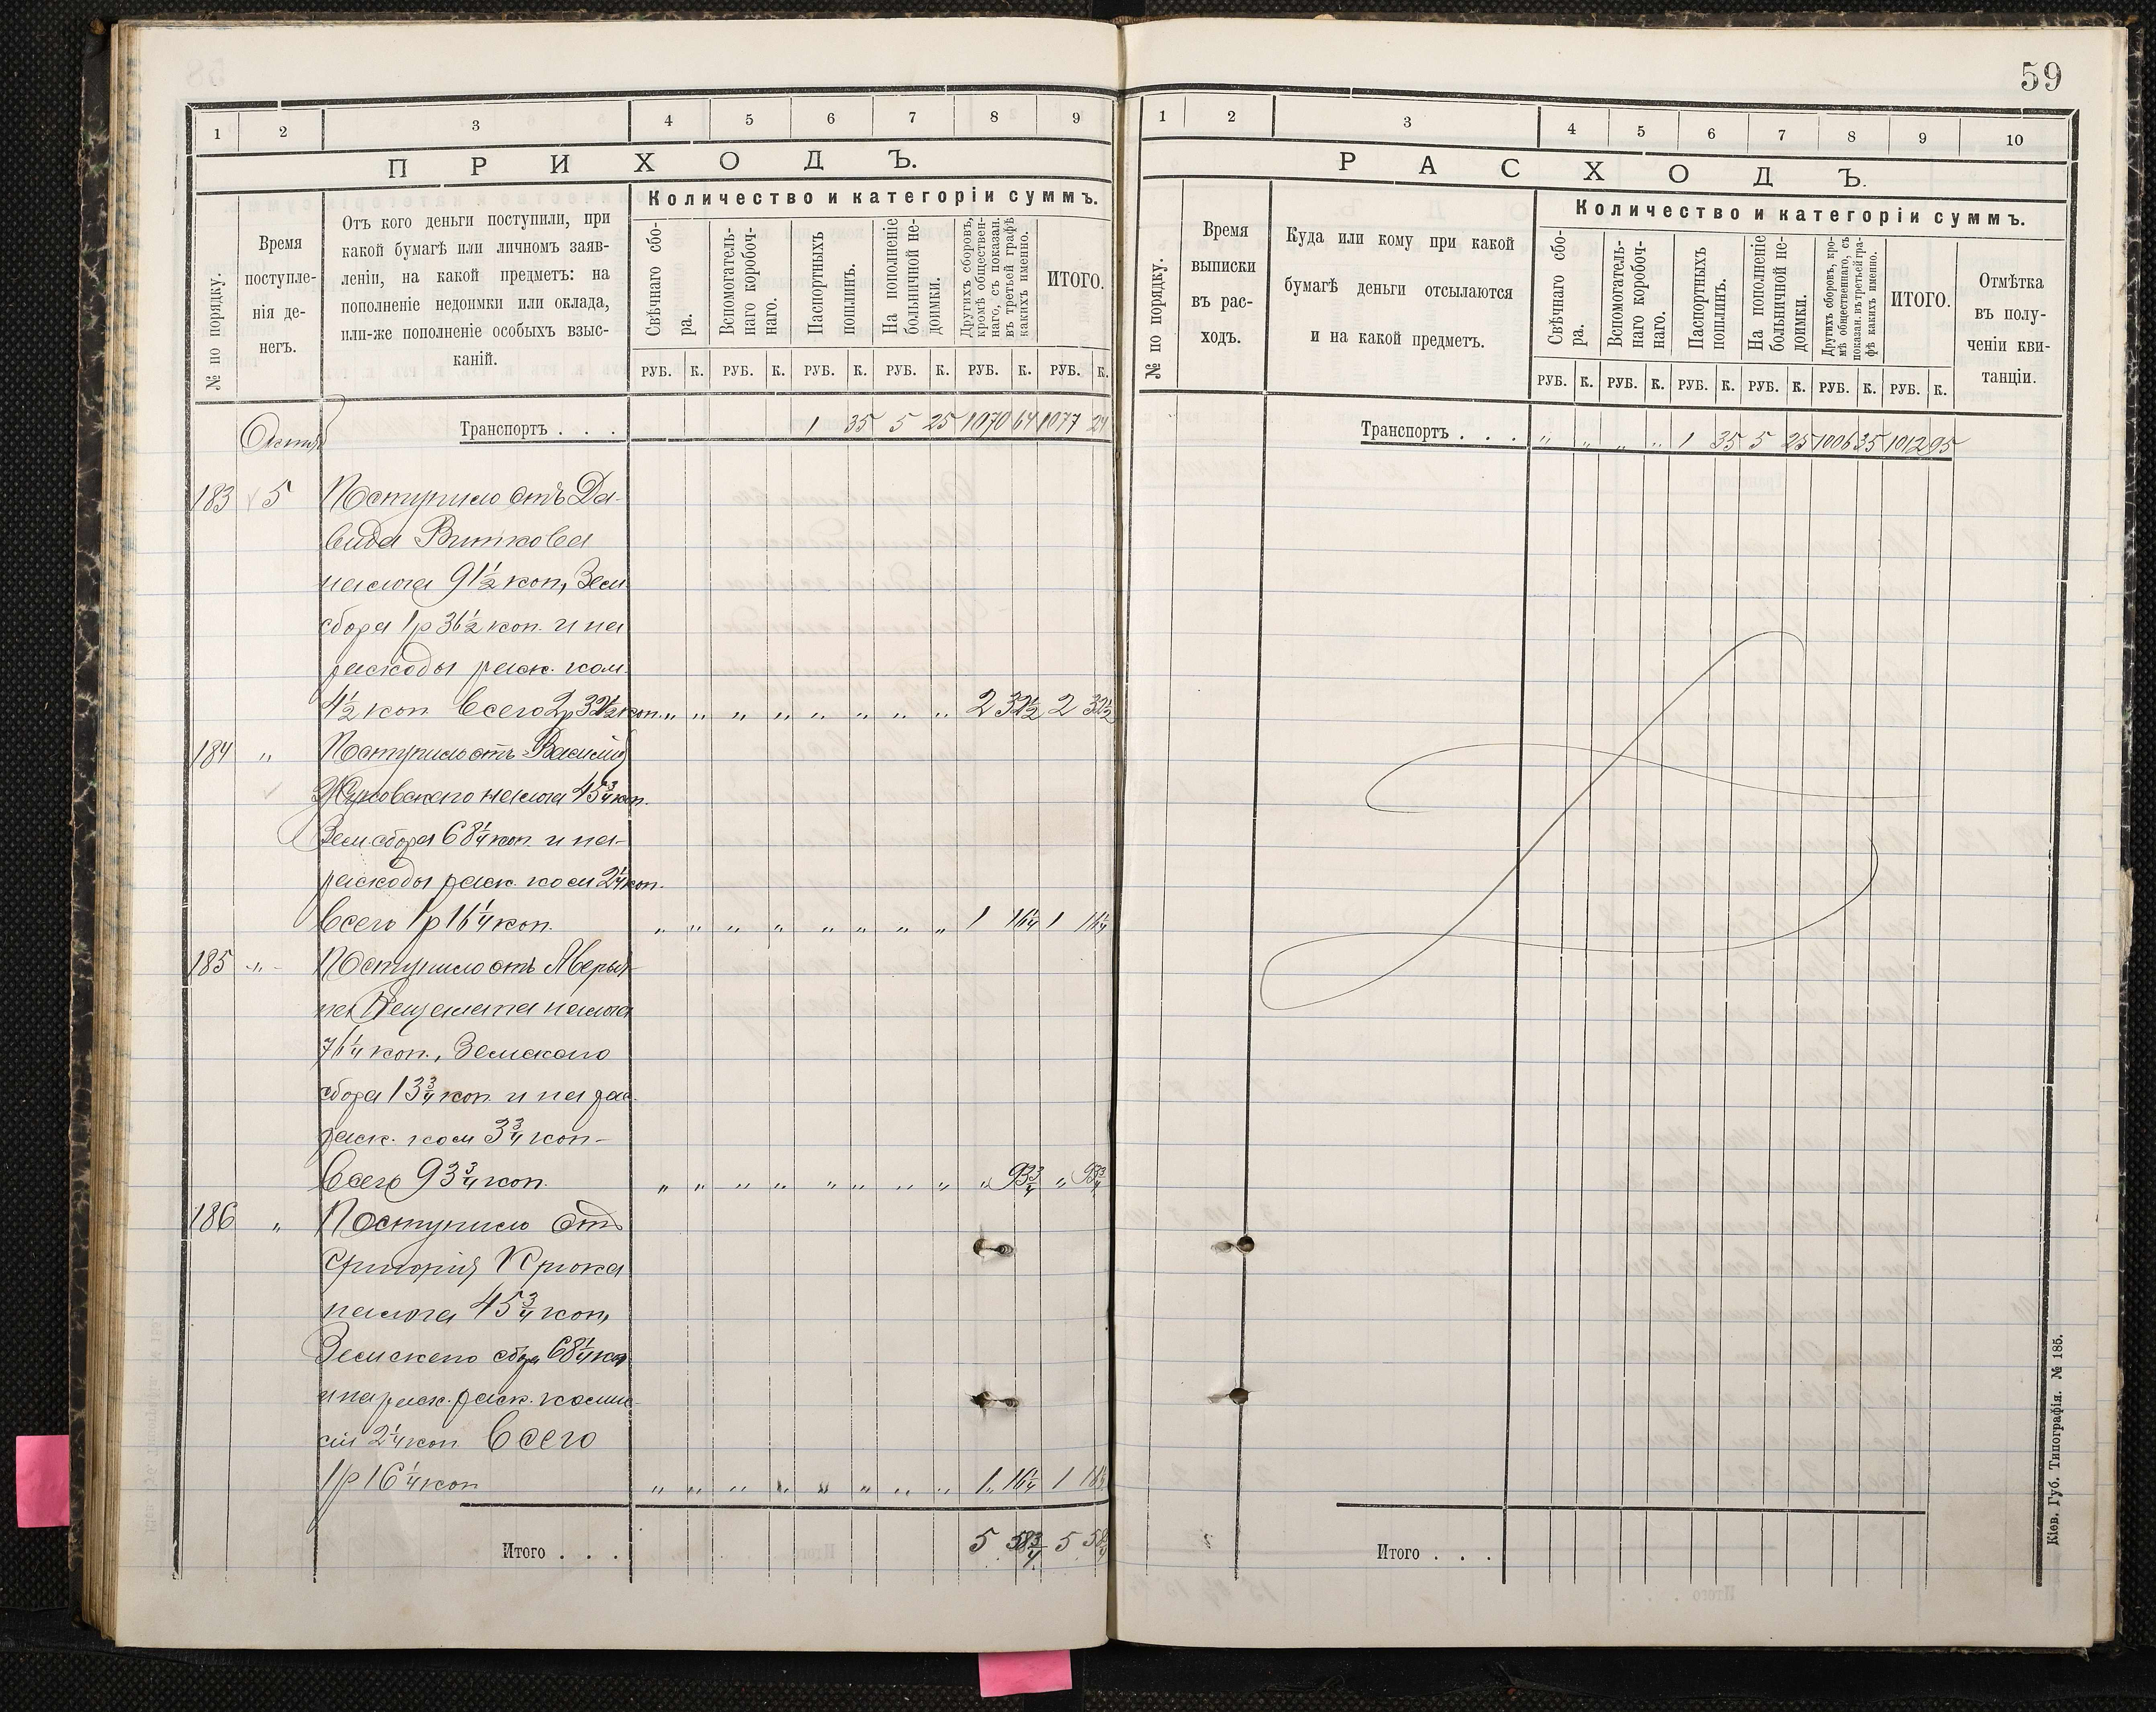 59
1 2 3 4 5 6 7 8 9
ПРИХОДЪ.
№ по порядку.
Время
поступле-
нія де-
негъ.
Отъ кого деньги поступили, при
какой бумагѣ или личномъ заяв-
леніи, на какой предметъ: на
пополненіе недоимки или оклада,
или-же пополненіе особыхъ взыс-
каній.
Количество и категоріи суммъ.
Свѣчнаго сбо-
ра.
Вспомогатель-
наго коробоч-
наго.
Паспортныхъ
пошлинъ.
На пополненіе
больничной не-
доимки.
Другихъ сборовъ,
кромѣ обществен-
наго, съ показан.
въ третьей графѣ
какихъ именно.
ИТОГО.
РУБ. К. РУБ. К. РУБ. К. РУБ. К. РУБ. К. РУБ. К.
Октяб
Транспортъ . . . 1 35 5 25 1070 64 1077 24
183 5 Поступило отъ Да-
вида Виткова
налога 91½ коп, Зем
сбора 1р 36½ коп. и на
расходы раск. ком.
4½ коп всего 2р 32½ коп. „ „ „ „ „ „ „ „ 2 32½ 2 32½
184 „ Поступило отъ Василія
Жуковскаго налога 45¾ коп.
Зем. сбора 68¼ коп. и на-
расходы раск. ком 2¼ коп.
всего 1р 16¼ коп. „ „ „ „ „ „ „ „ 1 16¼ 1 16¼
185 „ Поступило отъ
налога
76¼ коп., Земскаго
сбора 13¾ коп. и на рас.
раск. ком 3¾ коп-
всего 93¾ коп. „ „ „ „ „ „ „ „ „ 93¾ „ 93¾
186 „ Поступило отъ
Григорія Крюка
налога 45¾ коп,
Земскаго сбора 68¼ ко
и на расх. раск. комми-
сіи 2¼ коп всего
1р 16¼ коп „ „ „ „ „ „ „ „ 1 16¼ 1 16¼
Итого . . . 5 58¾ 5 58¾
1 2 3 4 5 6 7 8 9 10
РАСХОДЪ.
№ по порядку.
Время
выписки
въ рас-
ходъ.
Куда или кому при какой
бумагѣ деньги отсылаются
и на какой предметъ.
Количество и категоріи суммъ.
Свѣчнаго сбо-
ра.
Вспомогатель-
наго коробоч-
наго.
Паспортныхъ
пошлинъ.
На пополненіе
больничной не-
доимки.
Другихъ сборовъ, кро-
мѣ общественнаго, съ
показан. въ третьей гра-
фѣ какихъ именно.
ИТОГО.
Отмѣтка
въ полу-
ченіи кви-
танціи.
РУБ. К. РУБ. К. РУБ. К. РУБ. К. РУБ. К. РУБ. К.
Транспортъ . . . „ „ „ „ 1 35 5 25 1006 35 1012 95
Итого . . .
Кіев. Губ. Типографія. № 185.